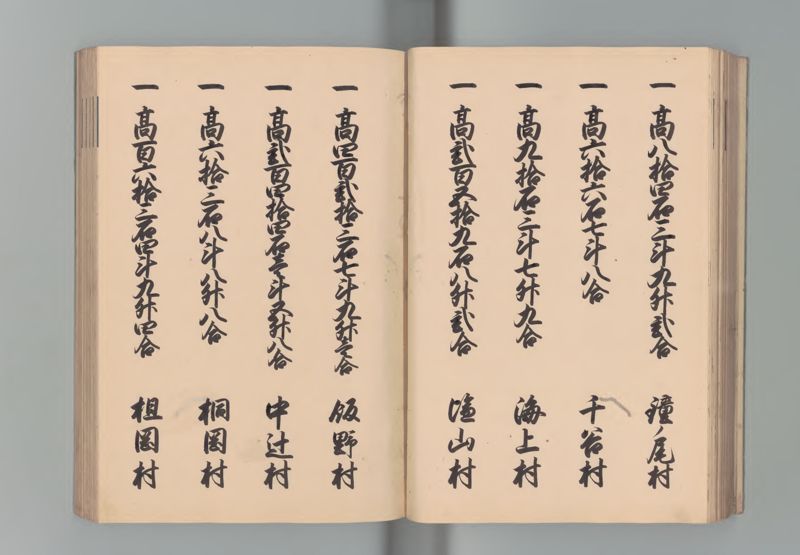 一 高八拾四石三斗九升弐合 鐘ノ尾村
一 高六拾六石七斗八合 千谷村
一 高九拾石三斗七升九合 海上村
一 高弐百五拾九石八升弐合 塩山村
一 高四百弐拾三石七斗九升壱合 飯野村
一 高弐百四拾四石壱斗五升八合 中辻村
一 高六拾三石八斗八升八合 桐岡村
一 高百六拾三石四斗九升四合 柤岡村